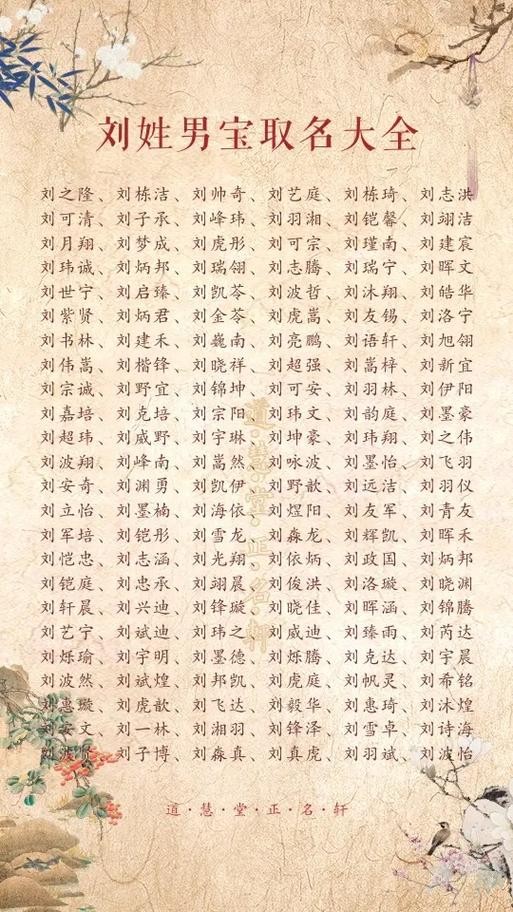 刘姓男宝取名大全
刘之隆、刘栋洁、刘帅奇、刘艺庭、刘栋琦、刘志洪
刘可清、刘子承、刘峰玮、刘羽湘、刘铠馨、刘翊洁
刘月翔、刘梦成、刘虎彤、刘可宗、刘瑾南、刘建宸
刘玮诚、刘炳邦、刘瑞翎、刘志腾、刘瑞宁、刘晖文
刘世宁、刘启臻、刘凯苓、刘波哲、刘沐翔、刘皓华
刘紫贤、刘炳君、刘金苓、刘虎嵩、刘友锡、刘洛宁
刘书林、刘建禾、刘巍南、刘亮鹏、刘语轩、刘旭翎
刘伟嵩、刘楷锋、刘晓祥、刘超强、刘嵩梓、刘新宜
刘宗诚、刘野宜、刘锦坤、刘可安、刘羽林、刘伊阳
刘嘉培、刘克培、刘宗阳、刘玮文、刘韵庭、刘墨豪
刘超玮、刘威野、刘宇琳、刘坤豪、刘玮翔、刘之伟
刘波翔、刘峰南、刘嵩然、刘咏波、刘墨怡、刘飞羽
刘安奇、刘渊勇、刘凯伊、刘野歆、刘远洁、刘羽仪
刘立怡、刘墨楠、刘海依、刘煜阳、刘友军、刘青友
刘军培、刘铠彤、刘雪龙、刘淼龙、刘辉凯、刘晖禾
刘恺忠、刘志涵、刘光翔、刘依炳、刘政国、刘炳邦
刘铠庭、刘忠承、刘翊晨、刘俊洪、刘洛璇、刘晓渊
刘轩晨、刘兴迪、刘锋璇、刘晓佳、刘晖涵、刘锦腾
刘艺宁、刘斌迪、刘玮之、刘威迪、刘臻雨、刘芮达
刘烁瑜、刘宇明、刘墨德、刘烁腾、刘克达、刘宇晨
刘波然、刘斌煌、刘邦凯、刘虎庭、刘帆灵、刘希铭
刘惠璇、刘虎歆、刘飞达、刘毅华、刘惠琦、刘沐煌
刘安文、刘一林、刘湘羽、刘锋泽、刘雪卓、刘诗海
刘波贤、刘子博、刘淼真、刘真虎、刘羽斌、刘波怡
道·慧·堂·正·名·轩
道·慧·堂·正·名·轩